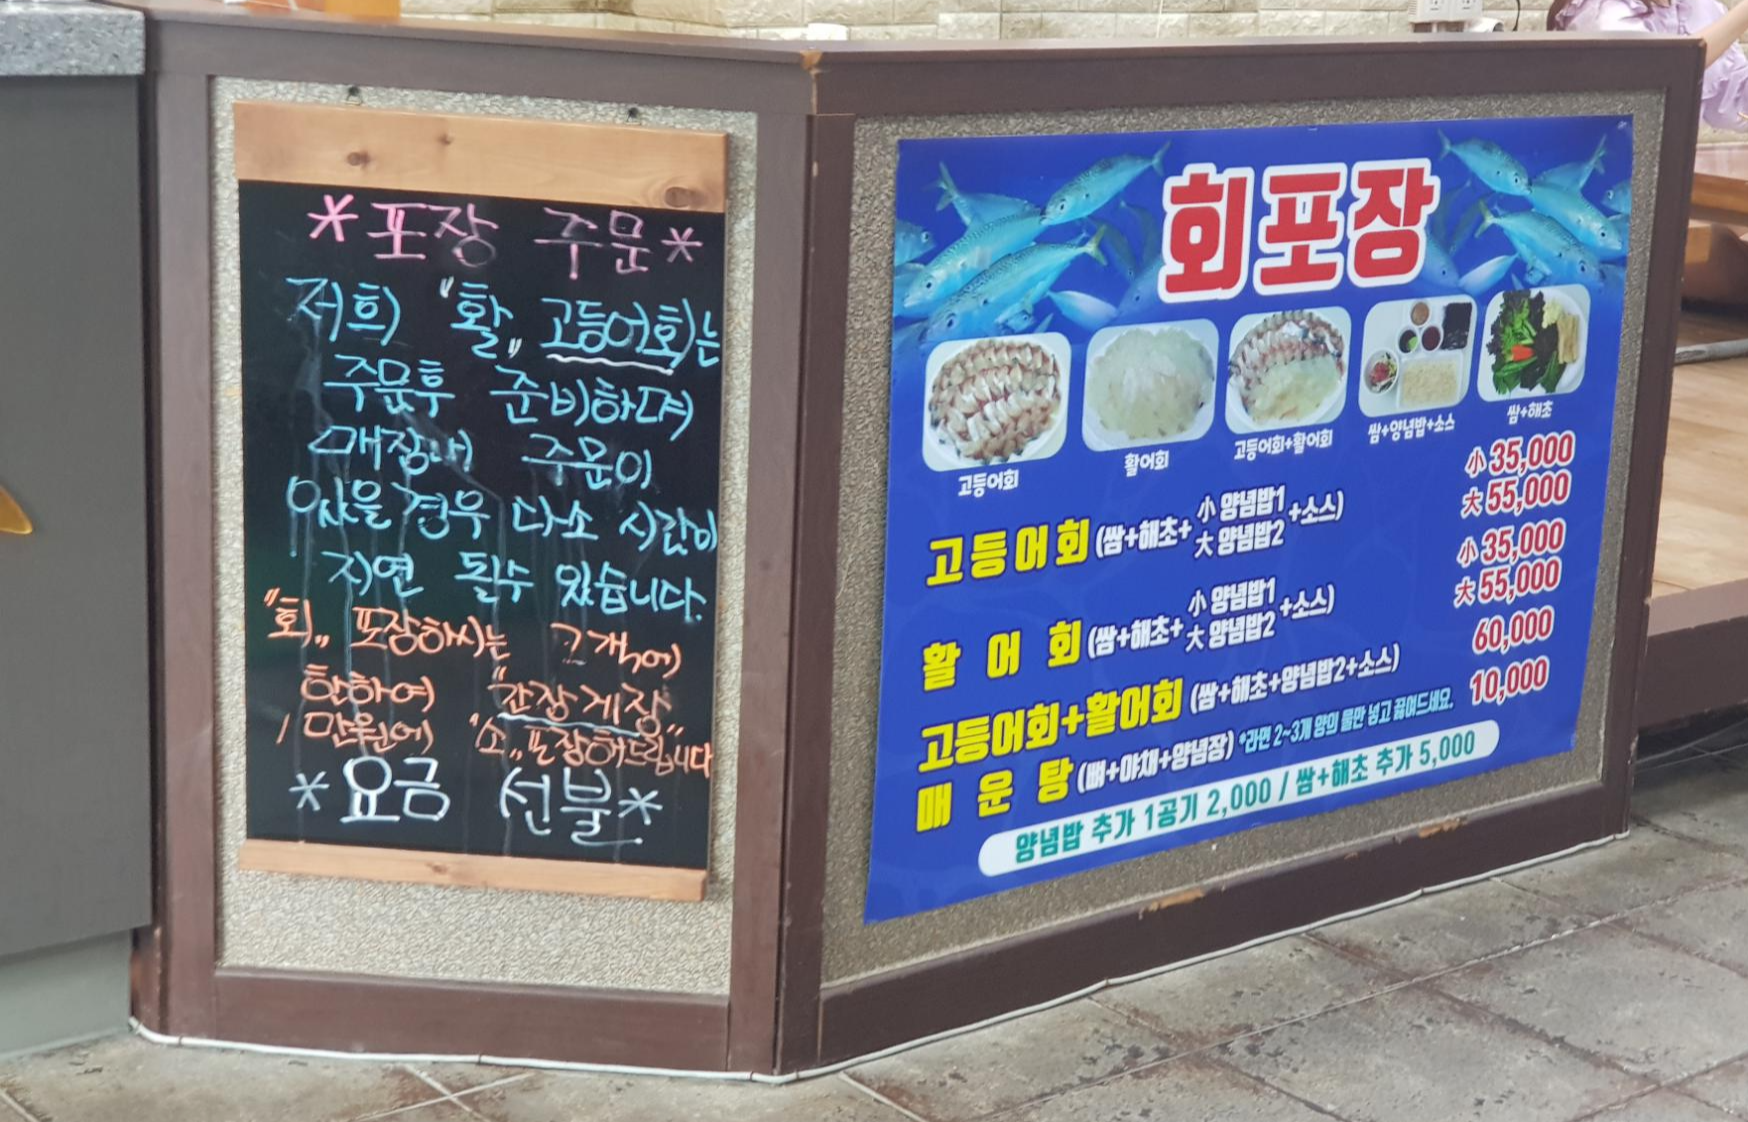 *포장 주문*
저희 "활" 고등어회는
주문후 준비하며
매장내 주문이
있을경우 다소 시간이
지연 될수 있습니다.
"회" 포장하시는 고객에
한하여 "간장게장"
1만원에 "소" 포장해드립니다
*요금 선불*
회포장
고등어회
활어회
고등어회+활어회
쌈+양념밥+소스
쌈+해초
고등어회 (쌈+해초+ 小 양념밥1 大 양념밥2 +소스) 小 35,000 大 55,000
활어회 (쌈+해초+ 小 양념밥1 大 양념밥2 +소스) 小 35,000 大 55,000
고등어회+활어회 (쌈+해초+양념밥2+소스) 60,000
매운탕 (뼈+야채+양념장) *라면 2~3개 양의 물만 넣고 끓여드세요. 10,000
양념밥 추가 1공기 2,000 / 쌈+해초 추가 5,000